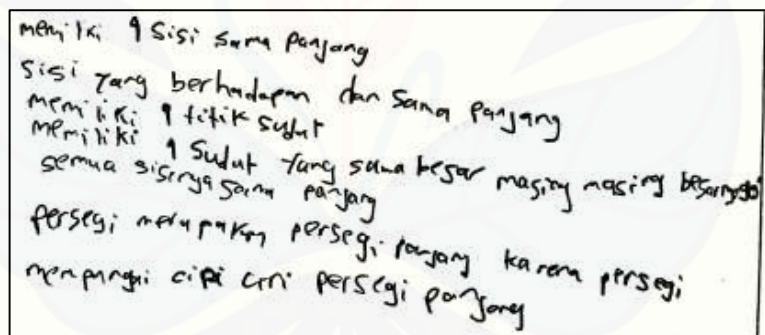 memiliki 4 sisi sama panjang
sisi yang berhadapan dan sama panjang
memiliki 4 titik sudut
memiliki 4 sudut yang sama besar masing masing besarnya 90°
semua sisinya sama panjang
persegi merupakan persegi panjang karena persegi
mempunyai ciri ciri persegi panjang